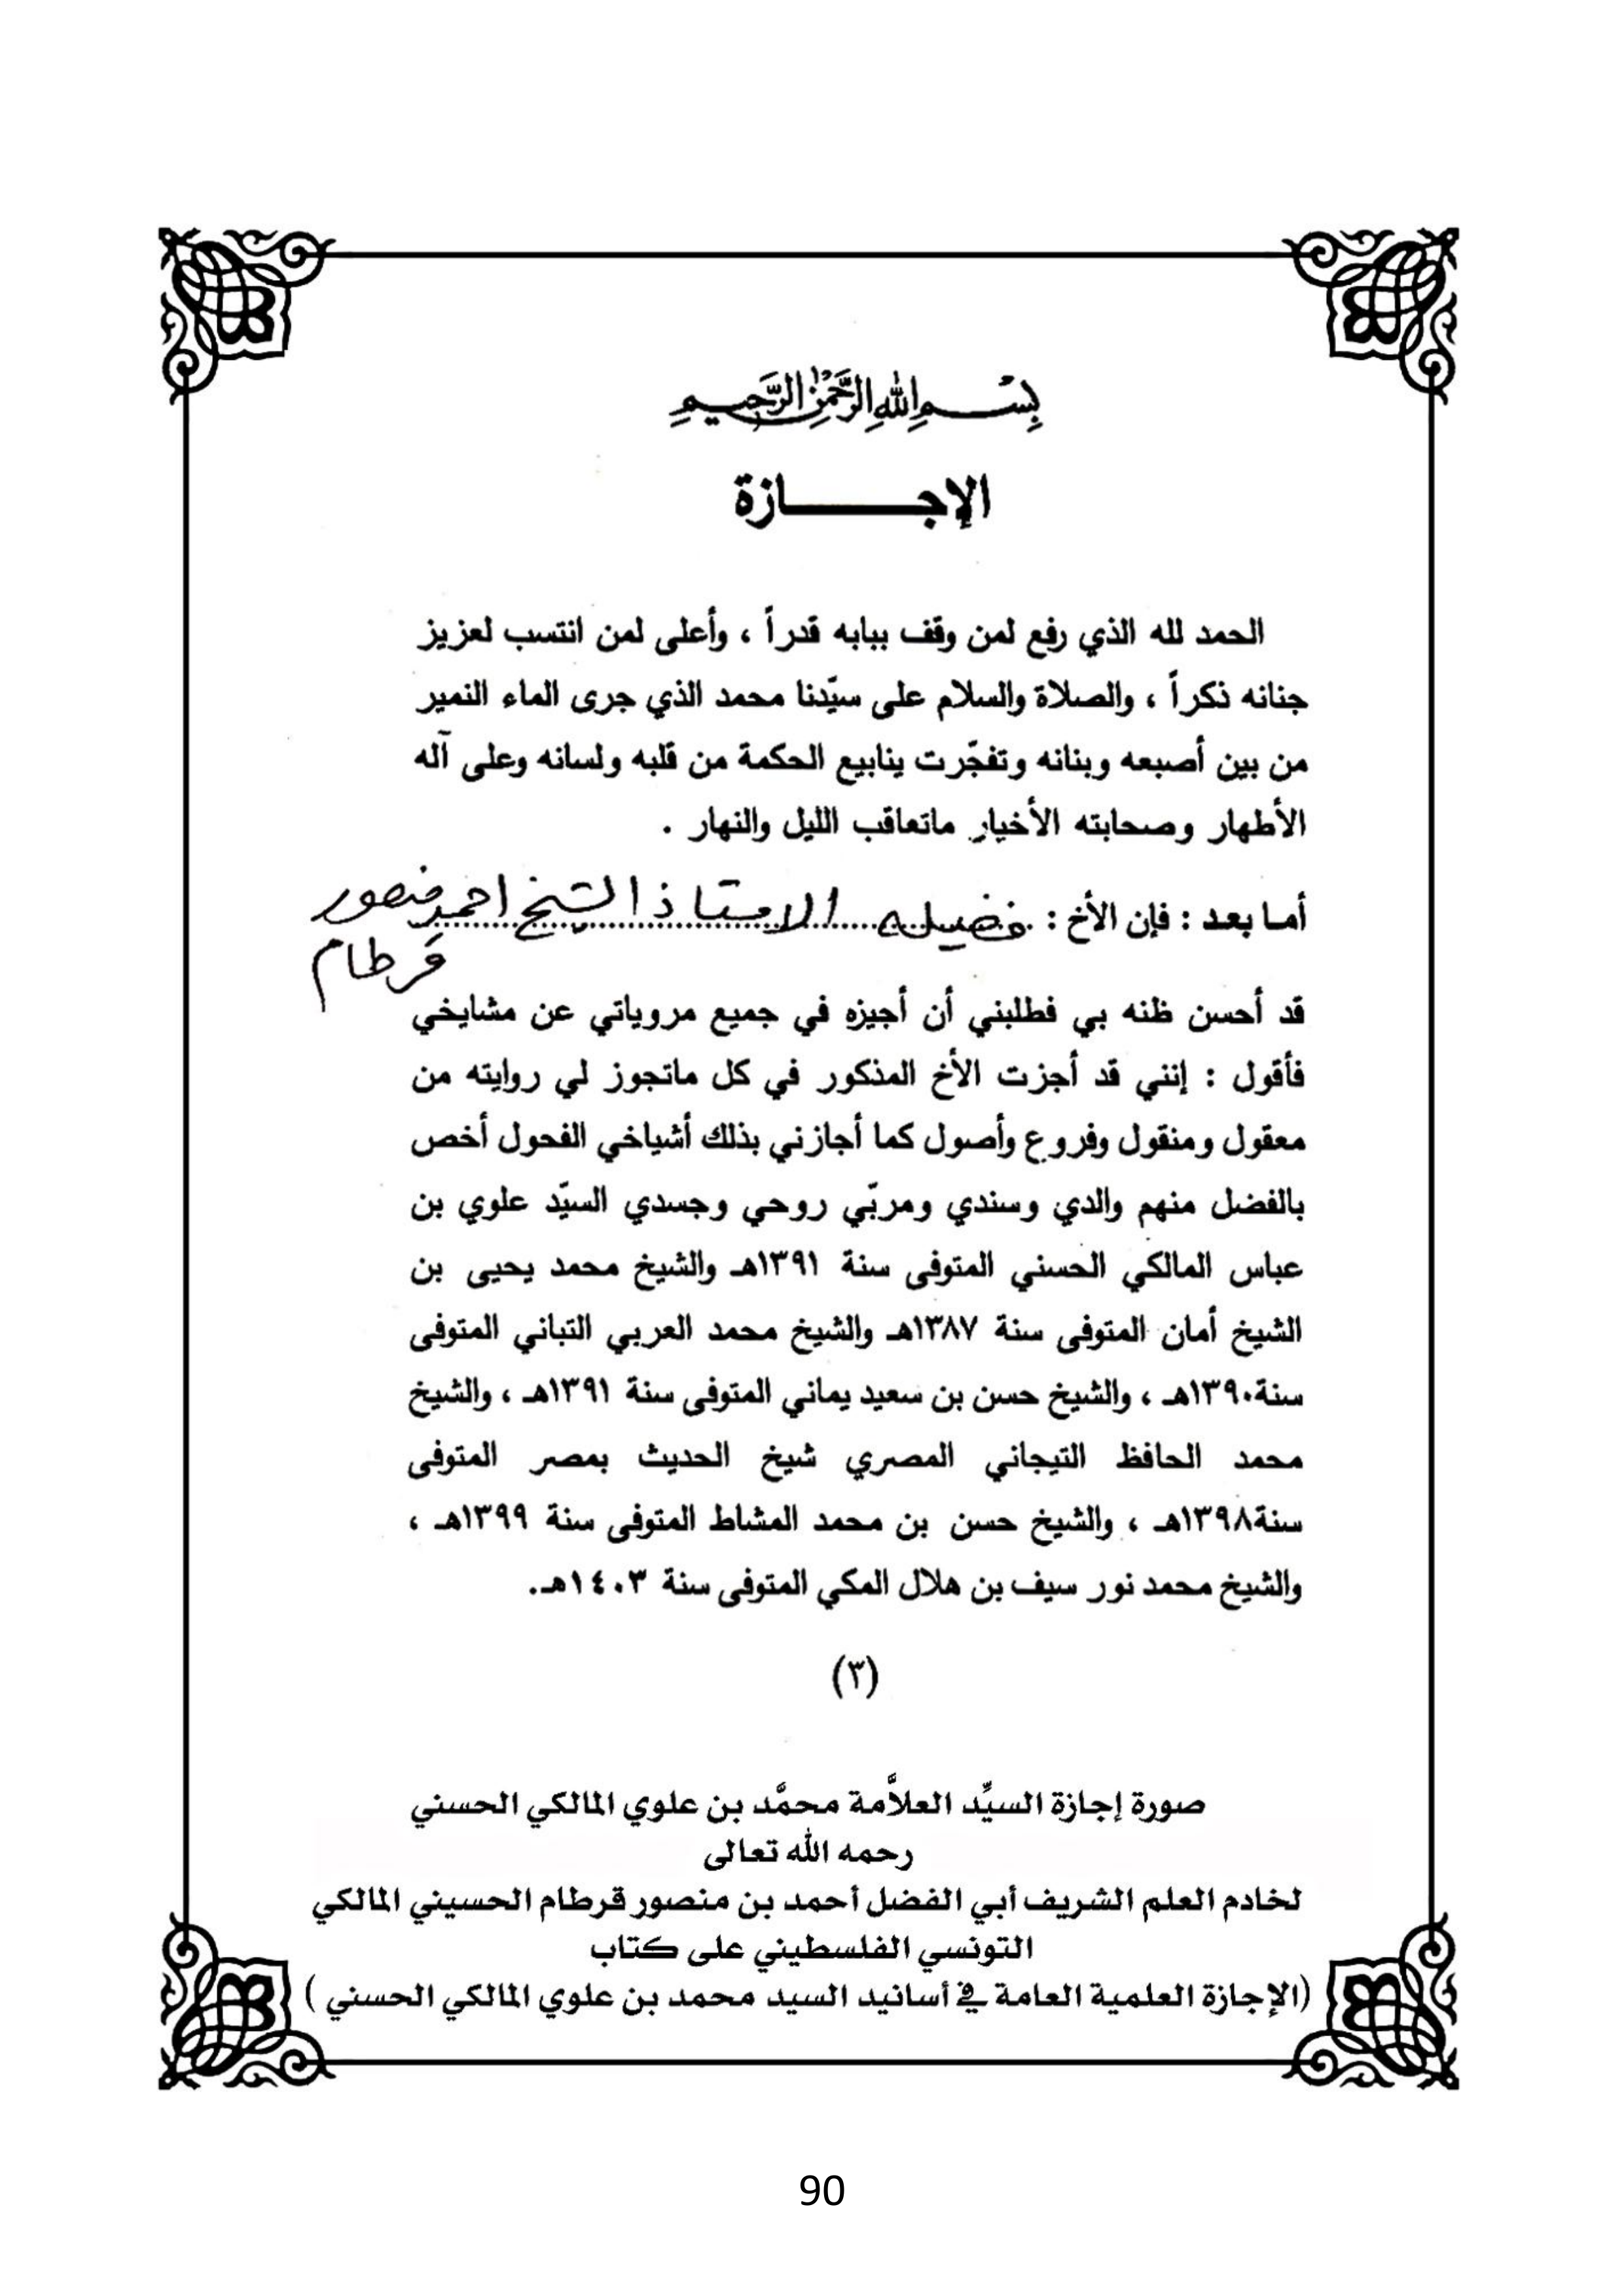 بِسْمِ اللهِ الرَّحْمٰنِ الرَّحِيمِ
الإجــــــازة
الحمد لله الذي رفع لمن وقف ببابه قدراً ، وأعلى لمن انتسب لعزيز
جنانه ذكراً ، والصلاة والسلام على سيّدنا محمد الذي جرى الماء النمير
من بين أصبعه وبنانه وتفجّرت ينابيع الحكمة من قلبه ولسانه وعلى آله
الأطهار وصحابته الأخيار ماتعاقب الليل والنهار .
أما بعد : فإن الأخ : فضيلة الاستاذ الشيخ احمد منصور
قرطام
قد أحسن ظنه بي فطلبني أن أجيزه في جميع مروياتي عن مشايخي
فأقول : إنني قد أجزت الأخ المذكور في كل ماتجوز لي روايته من
معقول ومنقول وفروع وأصول كما أجازني بذلك أشياخي الفحول أخص
بالفضل منهم والدي وسندي ومربّي روحي وجسدي السيّد علوي بن
عباس المالكي الحسني المتوفى سنة ١٣٩١هـ والشيخ محمد يحيى بن
الشيخ أمان المتوفى سنة ١٣٨٧هـ والشيخ محمد العربي التباني المتوفى
سنة١٣٩٠هـ ، والشيخ حسن بن سعيد يماني المتوفى سنة ١٣٩١هـ ، والشيخ
محمد الحافظ التيجاني المصري شيخ الحديث بمصر المتوفى
سنة١٣٩٨هـ ، والشيخ حسن بن محمد المشاط المتوفى سنة ١٣٩٩هـ ،
والشيخ محمد نور سيف بن هلال المكي المتوفى سنة ١٤٠٣هـ.
(٣)
صورة إجازة السيِّد العلاَّمة محمَّد بن علوي المالكي الحسني
رحمه الله تعالى
لخادم العلم الشريف أبي الفضل أحمد بن منصور قرطام الحسيني المالكي
التونسي الفلسطيني على كتاب
(الإجازة العلمية العامة في أسانيد السيد محمد بن علوي المالكي الحسني )
90